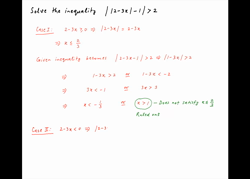 Solve the inequality | |2-3x| - 1 | > 2
Case I: 2-3x ≥ 0 ⇒ |2-3x| = 2-3x
⇒ x ≤ 2/3
Given inequality becomes |2-3x-1| > 2 ⇒ |1-3x| > 2
⇒ 1-3x > 2 or 1-3x < -2
⇒ 3x < -1 or 3x > 3
⇒ x < -1/3 or x > 1 - Does not satisfy x ≤ 2/3
Ruled out
Case II: 2-3x < 0 ⇒ |2-3